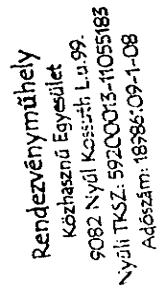 Rendezvényműhely
Közhasznú Egyesület
9082 Nyúl Kossuth L.u.99.
Nyúli TKSZ.: 59200013-11055183
Adószám: 18986109-1-08